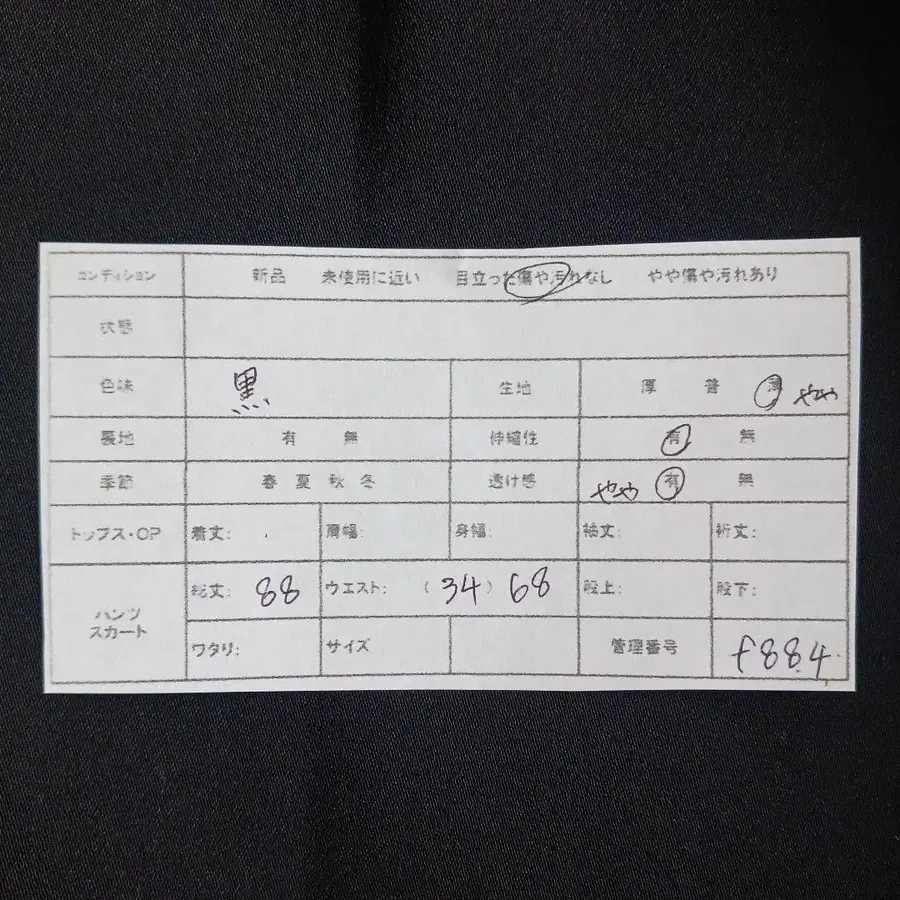 コンディション 新品 未使用に近い 目立った傷や汚れなし やや傷や汚れあり
状態
色味 黒 生地 厚 普 薄 やや
裏地 有 無 伸縮性 有 無
季節 春 夏 秋 冬 透け感 やや 有 無
トップス・OP 着丈: 肩幅: 身幅: 袖丈: 裄丈:
パンツ スカート 総丈: 88 ウエスト: (34) 68 股上: 股下:
ワタリ: サイズ 管理番号 f884